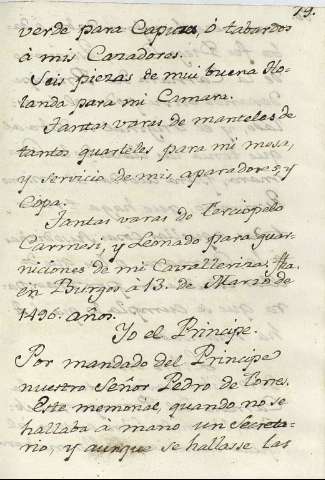 79.
verde para Capuzes, ó tabardos
à mis Cazadores.
Seis piezas de mui buena Ho-
landa para mi Camara.
Tantas varas de manteles de
tantos quarteles para mi mesa,
y servicio de mis aparadores, y
Copa.
Tantas varas de Terciopelo
Carmesi, y Leonado para guar-
niciones de mi Cavalleriza, fha.
en Burgos a 13. de Marzo de
1496. años.
Yo el Principe.
Por mandado del Principe
nuestro Señor Pedro de Torres.
Este memorial, quando no se
hallaba à mano un Secreta-
rio, y aunque se hallasse las